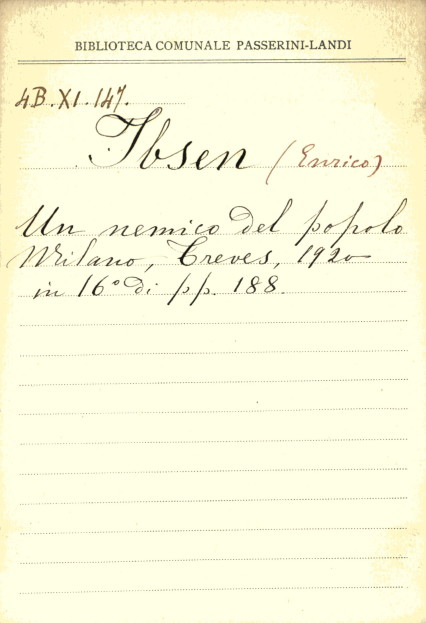 BIBLIOTECA COMUNALE PASSERINI-LANDI
4B.XI.147.
Ibsen (Enrico)
Un nemico del popolo
Milano, Treves, 1920
in 16° di pp. 188.